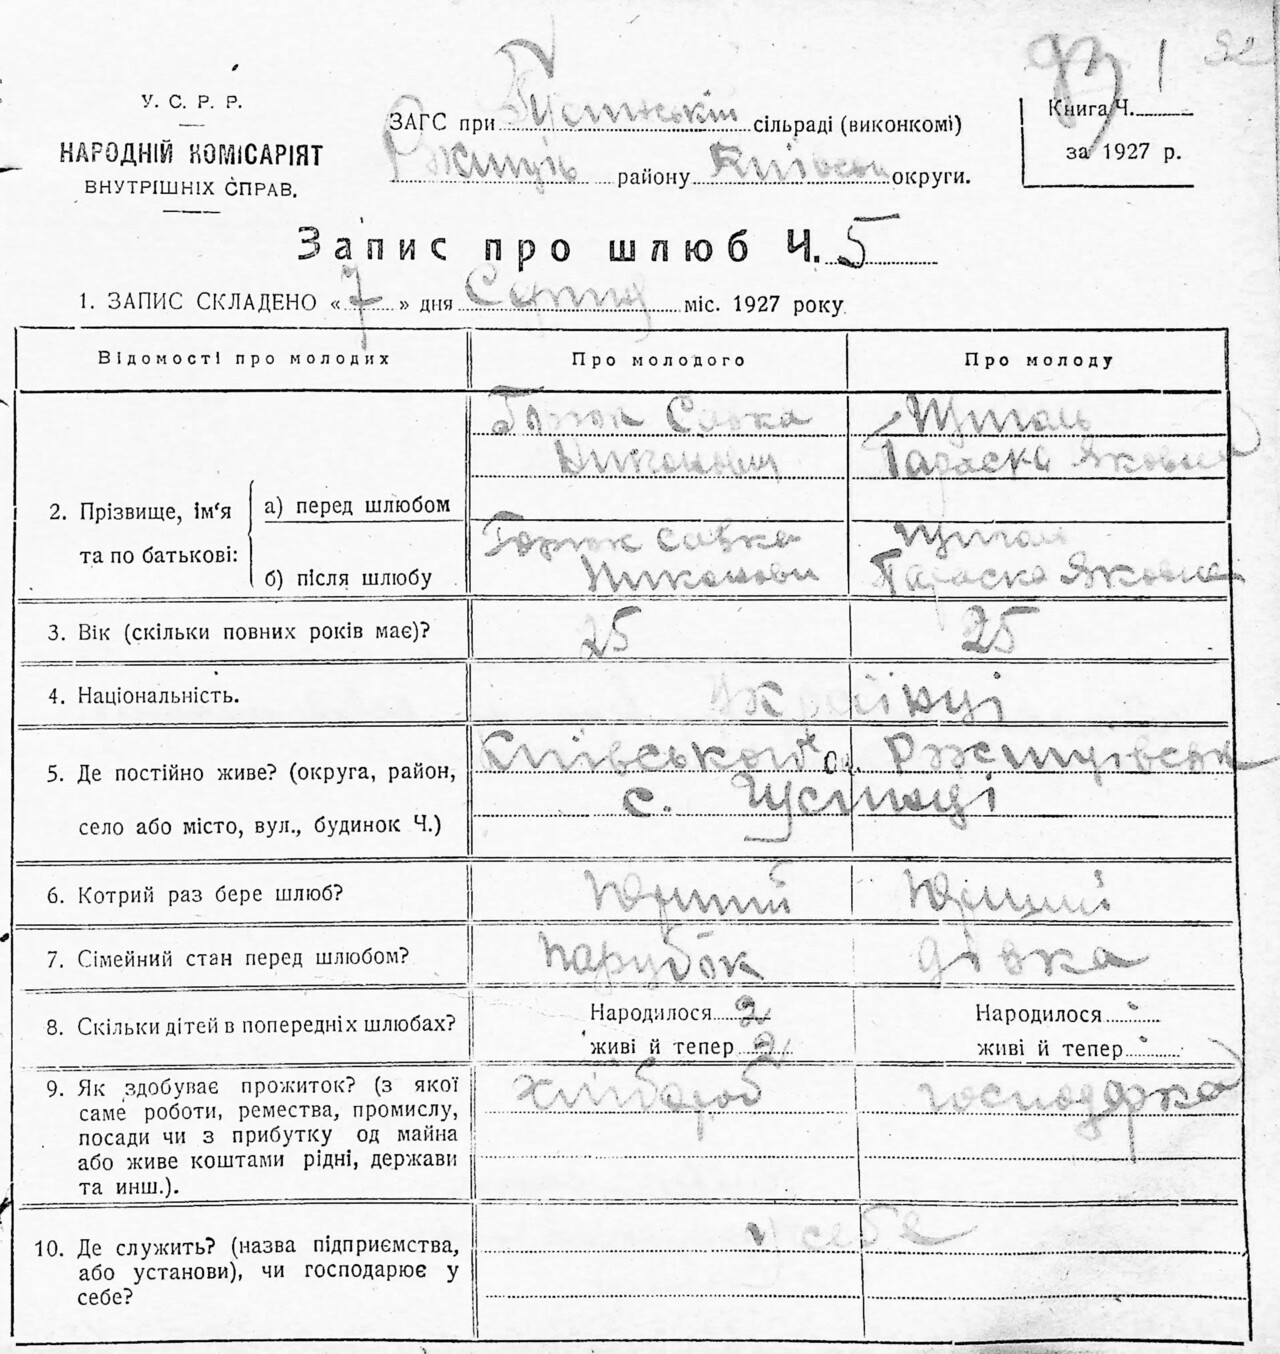 У. С. Р. Р.
НАРОДНІЙ КОМІСАРІЯТ
ВНУТРІШНІХ СПРАВ.
ЗАГС при Густинській сільраді (виконкомі)
Ржищів району Київськ округи.
Книга Ч.
за 1927 р.
Запис про шлюб Ч. 5
1. ЗАПИС СКЛАДЕНО « 7 » дня Серпня міс. 1927 року
Відомості про молодих Про молодого Про молоду
2. Прізвище, ім'я та по батькові:
а) перед шлюбом
Савка
Никонович
Параска Яковна
б) після шлюбу
Савка
Никонови
Параска Яковна
3. Вік (скільки повних років має)? 25 25
4. Національність. Українці
5. Де постійно живе? (округа, район,
село або місто, вул., будинок Ч.)
Київського Ок. Ржищівськ
с. Густинці
6. Котрий раз бере шлюб?
7. Сімейний стан перед шлюбом? парубок дівка
8. Скільки дітей в попередніх шлюбах?
Народилося 2 Народилося
живі й тепер 2 живі й тепер
9. Як здобуває прожиток? (з якої
саме роботи, ремества, промислу,
посади чи з прибутку од майна
або живе коштами рідні, держави
та инш.).
хлібороб господарка
10. Де служить? (назва підприємства,
або установи), чи господарює у
себе?
у себе